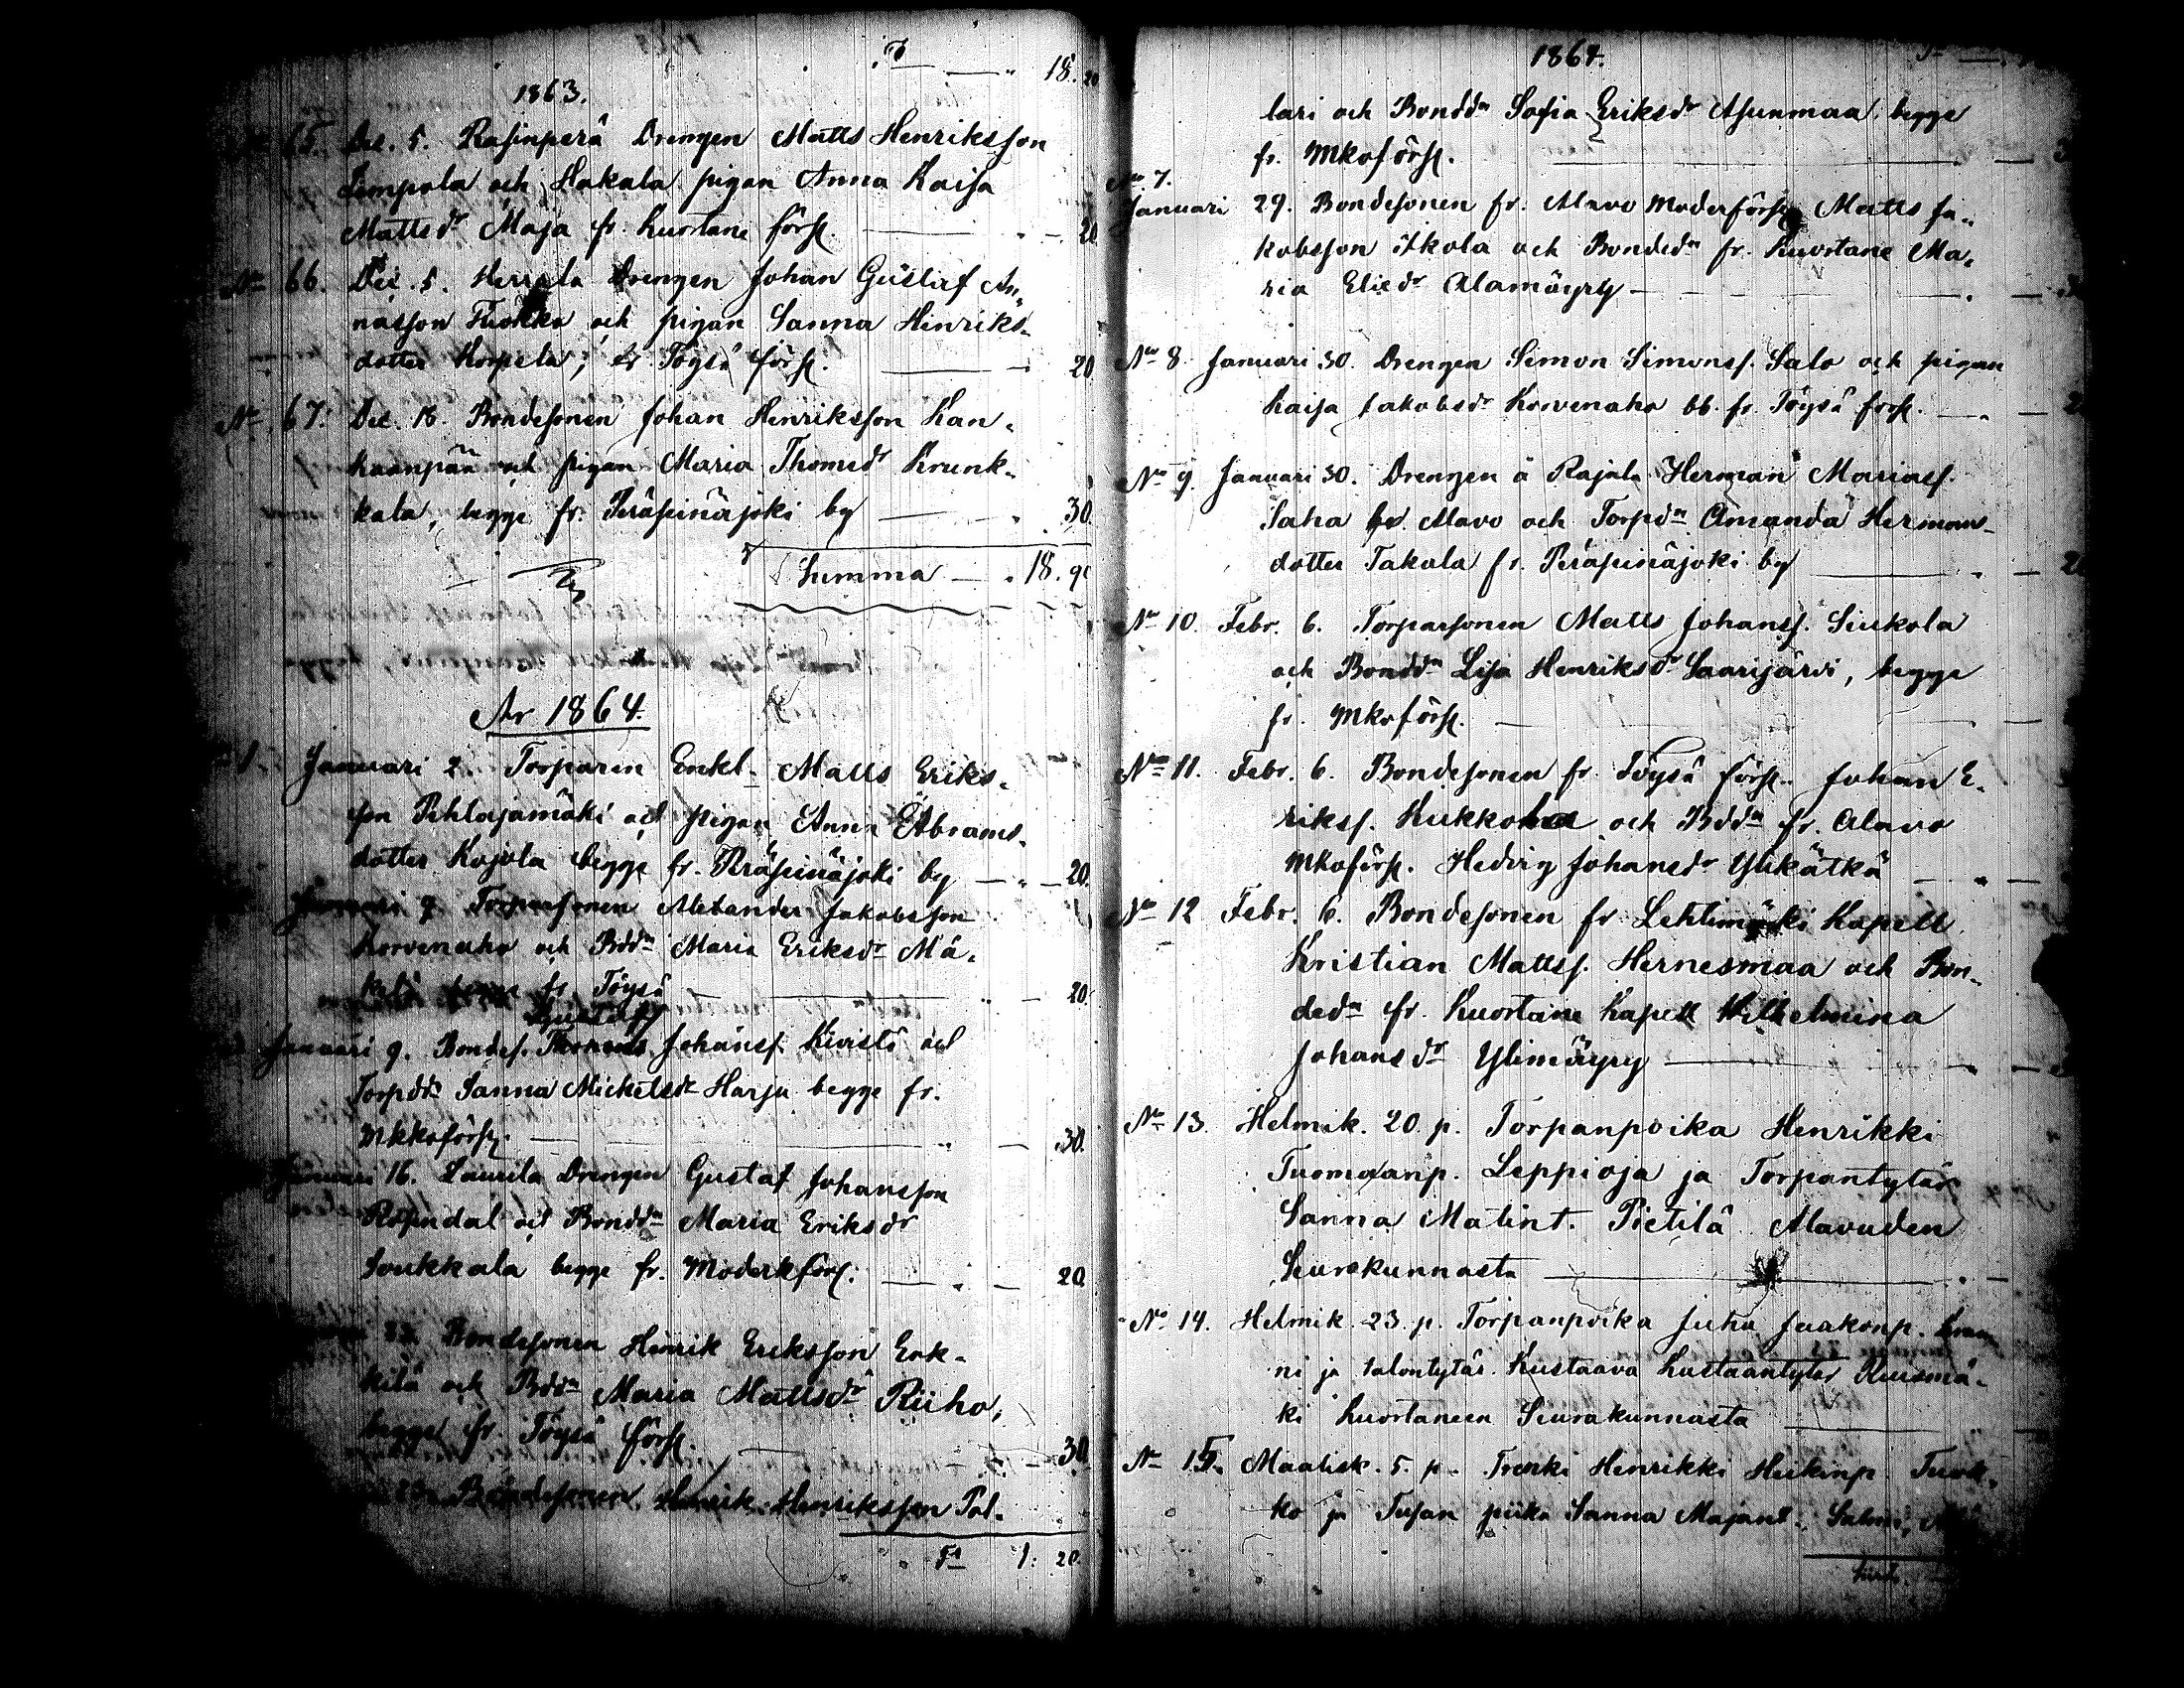 T — " 18. 20
1863.
65. Dec. 5. Rasinperä Drengen Matts Henriksson
Lempola och Hakala pigan Anna Kaisa
Mattsdr Maja fr. Kuortane förs. — " — 20
No 66. Dec. 5. Herrala Drengen Johan Gustaf An-
nasson Tuokko och pigan Sanna Henriks-
dotter Korpela, fr Töysä förs. — " 20
No 67. Dec. 18. Bondesonen Johan Henriksson Kan-
kaanpää och pigan Maria Thomedr Krunk-
kala, begge fr. Peräseinäjoki by — " 30.
Summa — " 18. 90
År 1864.
1. Januari 2. Torparen Enkl. Matts Eriks-
son Pihlajamäki och pigan Anna Abrams-
dotter Kojola begge fr. Peräseinäjoki by — " — 20.
Januari 9 Torparsonen Alexander Jakobsson
Korvenaho och Bddn Maria Eriksdr Mä-
kelä begge fr. Töysä — " — 20.
Gustaf
Januari 9. Bondes. Thomas Johanss. Kivistö och
Torpddn Sanna Mickelsdr Harju begge fr.
Mkkoförs. — " — 30.
Januari 16. Laurila Drengen Gustaf Johansson
Rosendal och Bonddn Maria Eriksdr
Soukkala begge fr. Moderkförs. — " — 20
23. Bondesonen Henrik Eriksson Erk-
kilä och Bddn Maria Mattsdr Riiho,
begge fr Töysä förs. — " — 30
23. Bondesonen Henrik Henriksson Pol-
Tr 1: 20.
1864.
lari och Bonddn Sofia Eriksdr Asunmaa, begge
fr. Mkoförs. —
No 7.
Januari 29. Bondesonen fr. Alavo Moderförs. Matts Ja-
kobsson Itkola och Bondedn fr. Kuortane Ma-
ria Eliedr Alamäyry —
No 8. Januari 30. Drengen Simon Simonss. Salo och pigan
Kaisa Jakobsdr Korvenaho bb. fr. Töysä förs. —
No 9. Januari 30. Drengen å Rajala Herman Mariass.
Saha fr. Alavo och Torpdn Amanda Herman-
dotter Takala fr. Peräseinäjoki by —
No 10. Febr. 6. Torparsonen Matts Johanss. Siukola
och Bonddn Lisa Henriksdr Saarijärvi, begge
fr. Mkoförs. —
No 11. Febr. 6. Bondesonen fr Töysä förs. Johan E-
rikss. Kukkola och Bddn fr. Alavo
Mkoförs. Hedvig Johansdr Ylikätkä —
No 12 Febr. 6. Bondesonen fr Lehtimäki Kapell
Kristian Mattss. Hernesmaa och Bon-
dedn fr. Kuortane Kapell Wilhelmina
Johansdr Ylimäyry —
No 13. Helmik. 20. p. Torpanpoika Henrikki
Tuomaanp. Leppioja ja Torpantytär
Sanna Matint. Pietilä Alavuden
Seurakunnasta —
No 14. Helmik. 23. p. Torpanpoika Juha Jaakonp.
ni ja talontytär Kustaava Kustaantytär Kuusmä-
ki Kuortaneen Seurakunnasta —
No 15. Maalisk. 5. p. Trenki Henrikki Heikinp. Tuok-
ko ja Tusan piika Sanna Majant. Salmi,